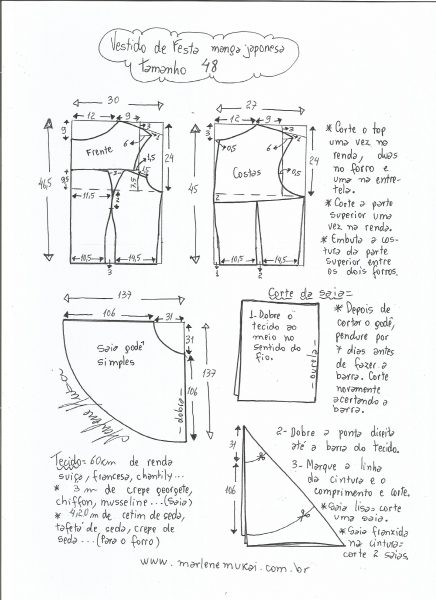 Vestido de Festa manga japonesa
tamanho 48
30
12
9
9
46,5
Frente
6
4,5
24
9,5
11,5
7,5
2
10,5
14,5
3
27
12
9
3
0,5
6
0,5
45
Costas
24
2
10,5
14,5
1
2
* Corte o top
uma vez na
renda, duas
no forro e
uma na entre-
tela.
* Corte a parte
superior uma
vez na renda.
* Embuta a cos-
tura da parte
superior entre
os dois forros.
137
106
31
31
106
137
Saia godê
simples
dobra
Marlene Mukai
Corte da saia=
1- Dobre o
tecido ao
meio no
sentido do
fio.
ourela
* Depois de
cortar o godê,
pendure por
7 dias antes
de fazer a
barra. Corte
novamente
acertando a
barra.
31
106
2- Dobre a ponta direita
até a barra do tecido.
3- Marque a linha
da cintura e o
comprimento e corte.
* Saia lisa= corte
uma saia.
* Saia franzida
na cintura=
corte 2 saias.
Tecido= 60cm de renda
suiça, francesa, chantily...
* 3 m de crepe georgete,
chiffon, musseline...(saia)
* 4,20 m de cetim de seda,
tafetá de seda, crepe de
seda...(Para o forro)
www.marlenemukai.com.br